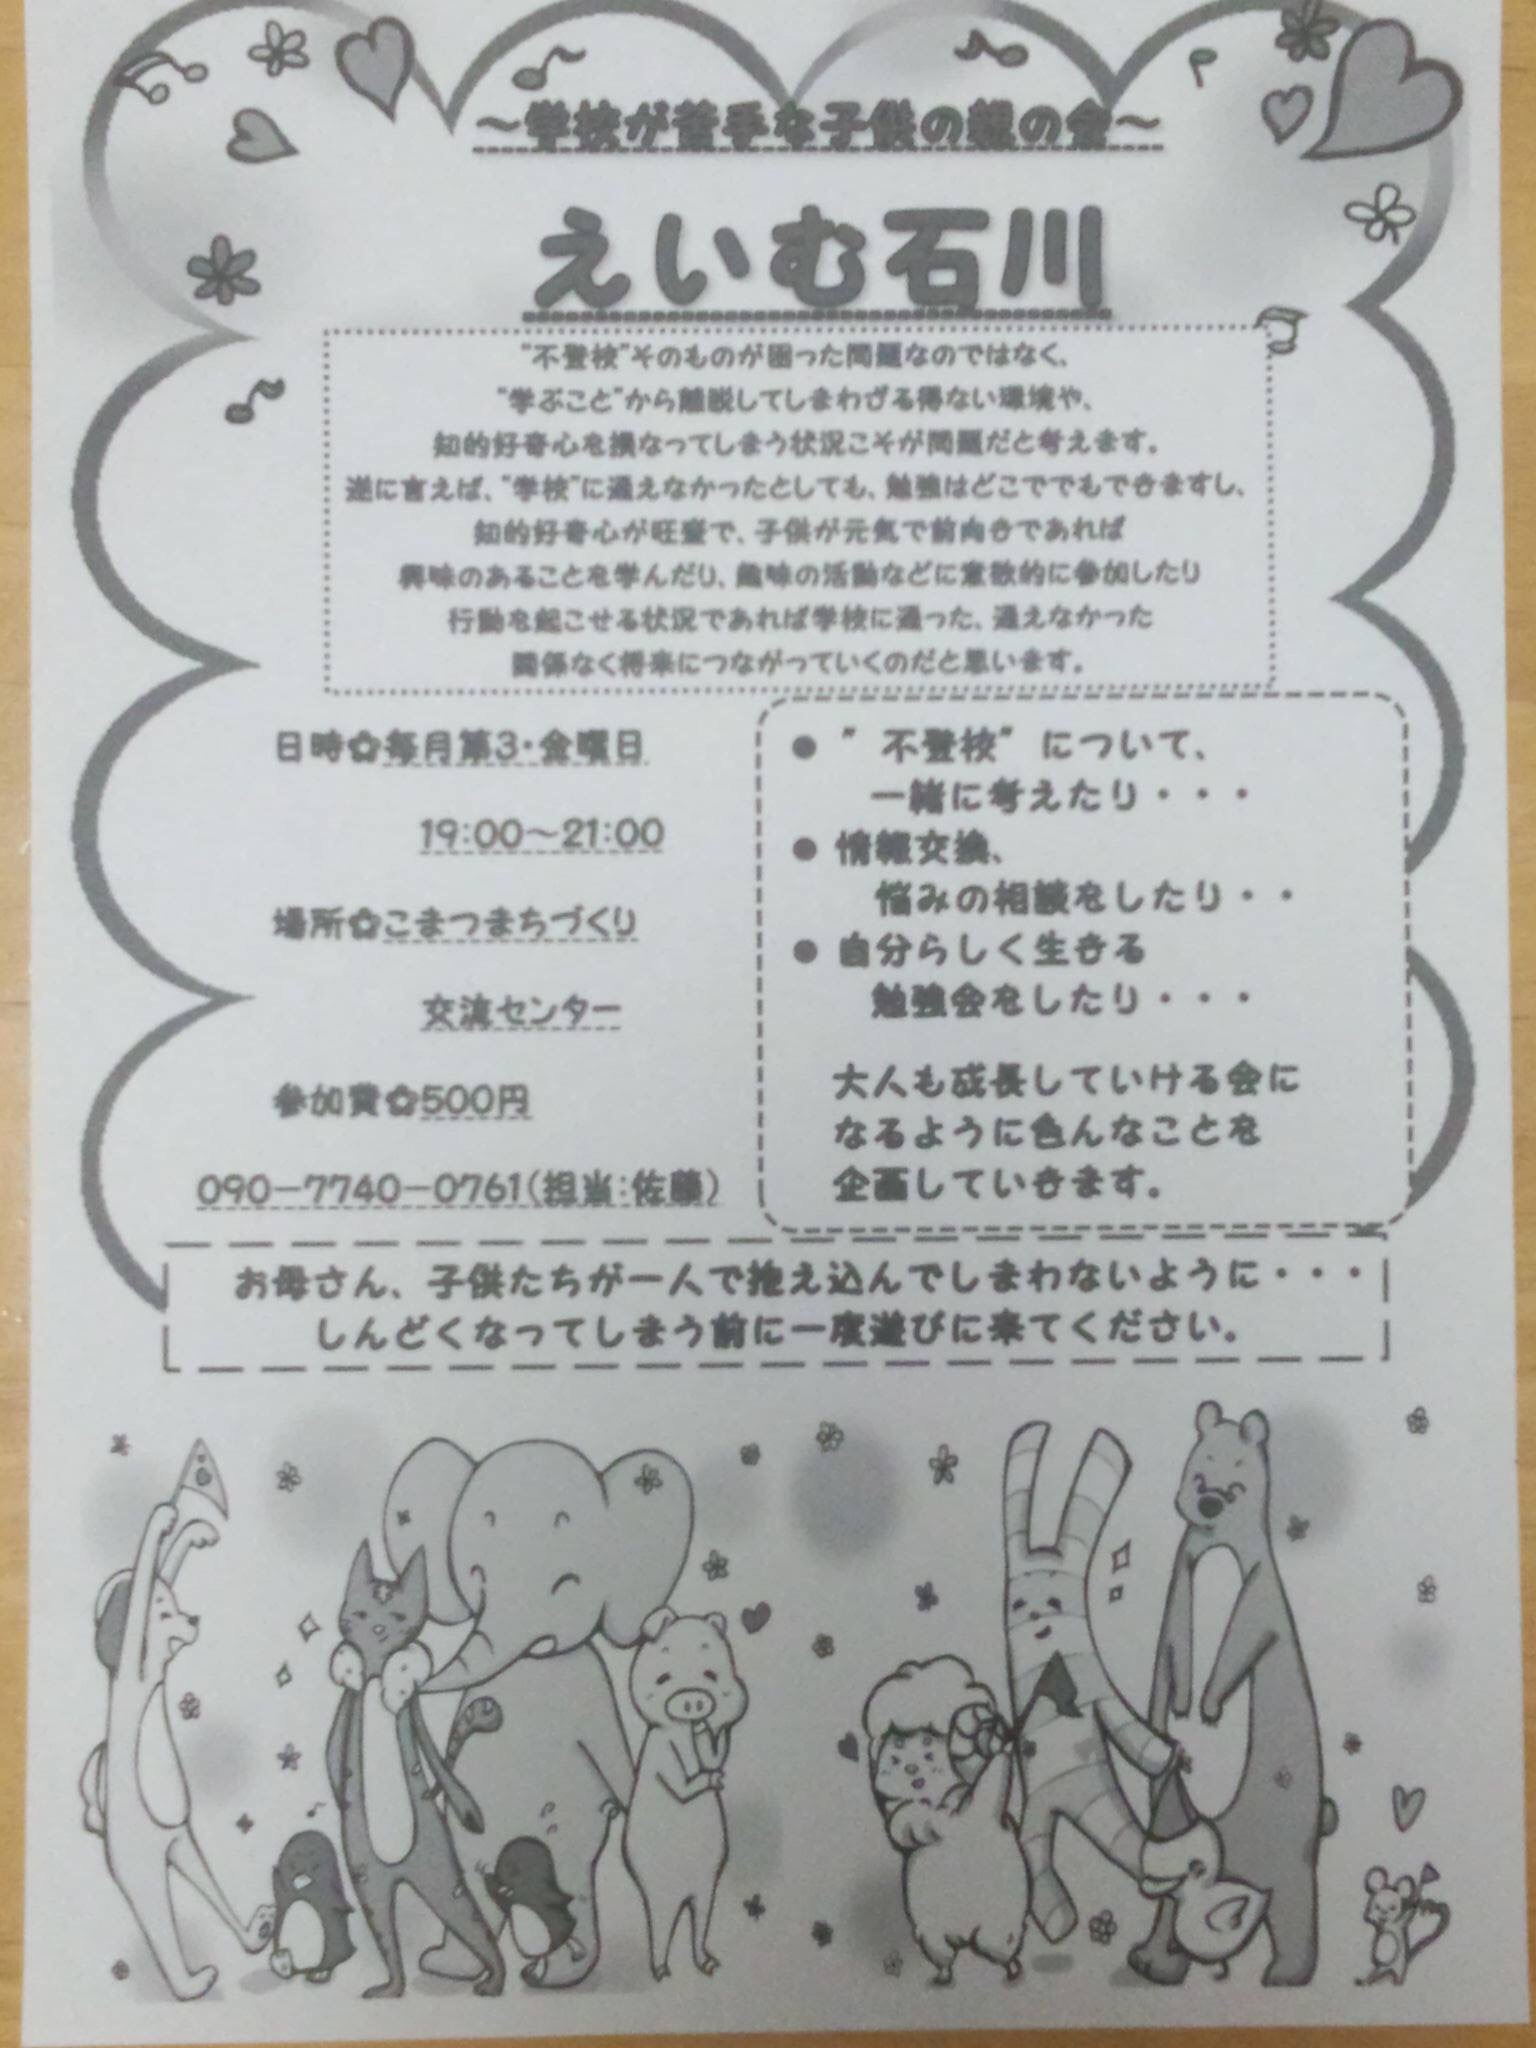 ～学校が苦手な子供の親の会～
えいむ石川
"不登校"そのものが困った問題なのではなく、
"学ぶこと"から離脱してしまわざる得ない環境や、
知的好奇心を損なってしまう状況こそが問題だと考えます。
逆に言えば、"学校"に通えなかったとしても、勉強はどこででもできますし、
知的好奇心が旺盛で、子供が元気で前向きであれば
興味のあることを学んだり、趣味の活動などに意欲的に参加したり
行動を起こせる状況であれば学校に通った、通えなかった
関係なく将来につながっていくのだと思います。
日時✿毎月第3・金曜日
19:00～21:00
場所✿こまつまちづくり
交流センター
参加費✿500円
090－7740－0761(担当:佐藤)
● "不登校"について、
一緒に考えたり・・・
● 情報交換、
悩みの相談をしたり・・
● 自分らしく生きる
勉強会をしたり・・・
大人も成長していける会に
なるように色んなことを
企画していきます。
お母さん、子供たちが一人で抱え込んでしまわないように・・・
しんどくなってしまう前に一度遊びに来てください。